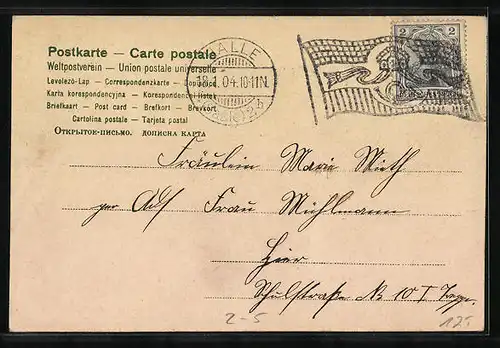 Postkarte — Carte postale
Weltpostverein — Union postale universelle
Levelező-Lap — Correspondenzkarte — Dopisnice
Karta korespondencyjna — Korespondenční lístek
Briefkaart — Post card — Brefkort — Brevkort
Cartolina postale — Tarjeta postal
Открытое-письмо. дописна карта
HALLE
04.10-11N.
(Saale)
2 2
Fräulein Marie Muth
per Ads Frau Mühlmann
Hier
Schulstraße № 10 I
2-5
125